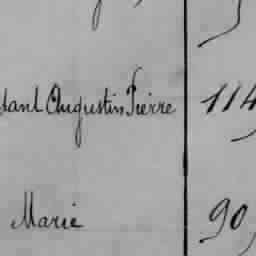 Augustin Pierre 114
Marie 90